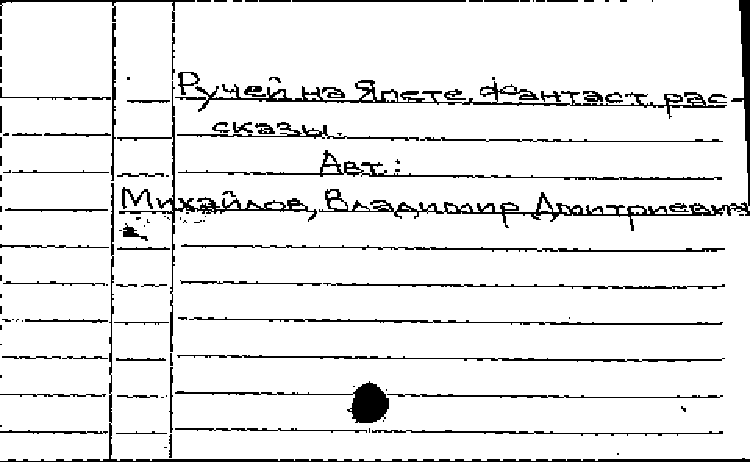 Ручей на Япете. Фантаст. рас-
сказы.
Авт.:
Михайлов, Владимир Дмитриевич